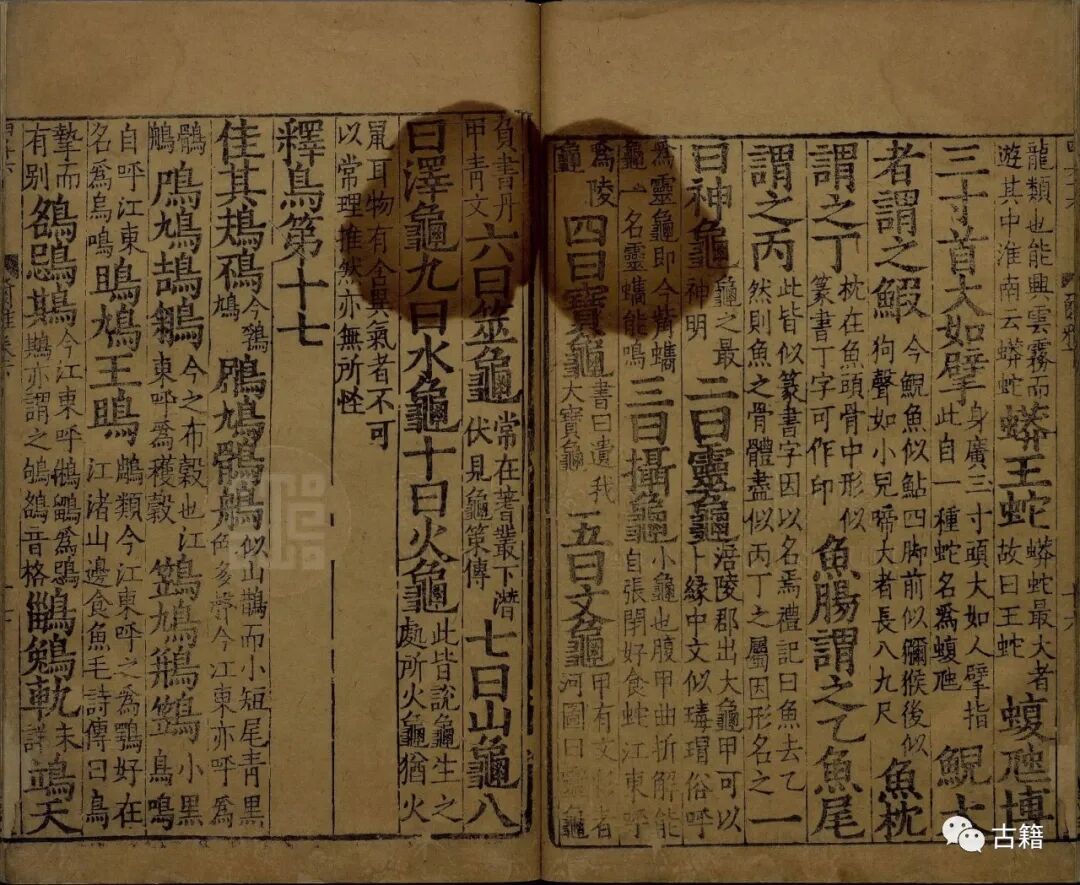 龍類也能興雲霧而遊其中淮南云蟒蛇蟒王蛇蟒蛇最大者故曰王蛇蝮虺博
三寸首大如擘身廣三寸頭大如人擘指此自一種蛇名爲蝮虺鯢大
者謂之鰕今鯢魚似鮎四脚前似獼猴後似狗聲如小兒啼大者長八九尺魚枕
謂之丁枕在魚頭骨中形似篆書丁字可作印魚腸謂之乙魚尾
謂之丙此皆似篆書字因以名焉禮記曰魚去乙然則魚之骨體盡似丙丁之屬因形名之一
曰神龜龜之最神明二曰靈龜涪陵郡出大龜甲可以卜緣中文似瑇瑁俗呼
爲靈龜即今觜蠵龜一名靈蠵能鳴三曰攝龜小龜也腹甲曲折解能自張閉好食蛇江東呼
爲陵龜四曰寶龜書曰遺我大寶龜五曰文龜甲有文彩者河圖曰靈龜
負書丹甲青文六曰筮龜常在蓍叢下潛伏見龜策傳七曰山龜八
曰澤龜九曰水龜十曰火龜此皆說龜生之處所火龜猶火
鼠耳物有含異氣者不可以常理推然亦無所怪
釋鳥第十七
隹其鳺鴀今鳩鶌鳩鶻鵃似山鵲而小短尾青黑色多聲今江東亦呼爲
鶻鵃鳲鳩鴶鵴今之布穀也江東呼爲穫穀鷑鳩鵧鷑小黑鳥鳴
自呼江東名爲烏鳴鴡鳩王鴡鵰類今江東呼之爲鶚好在江渚山邊食魚毛詩傳曰鳥
摯而有别鵅鵋䳢今江東呼鵂鶹爲鵋䳢亦謂之鴝鵅音格鶅鵵軌未詳鴗天
古籍